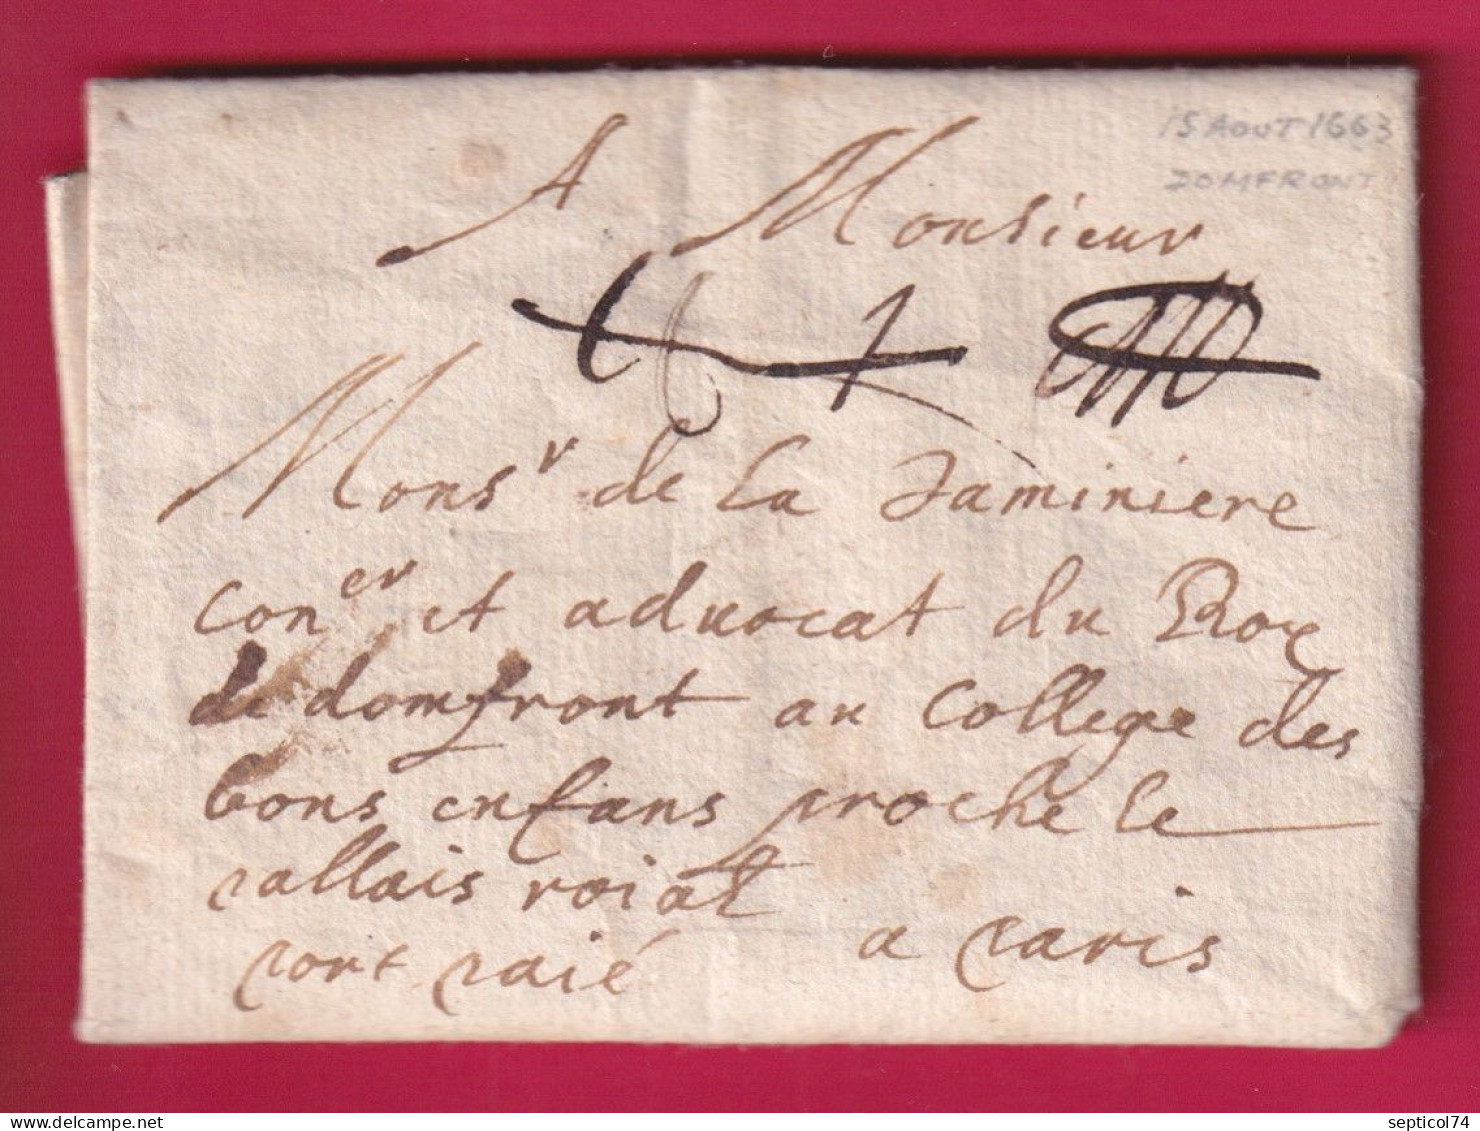 15 AOUT 1663
DOMFRONT
A Monsieur
Monsr de la Jaminiere
coner et advocat du Roy
de domfront au College des
bons enfans proche le
pallais roial a paris
port paié
septicol74